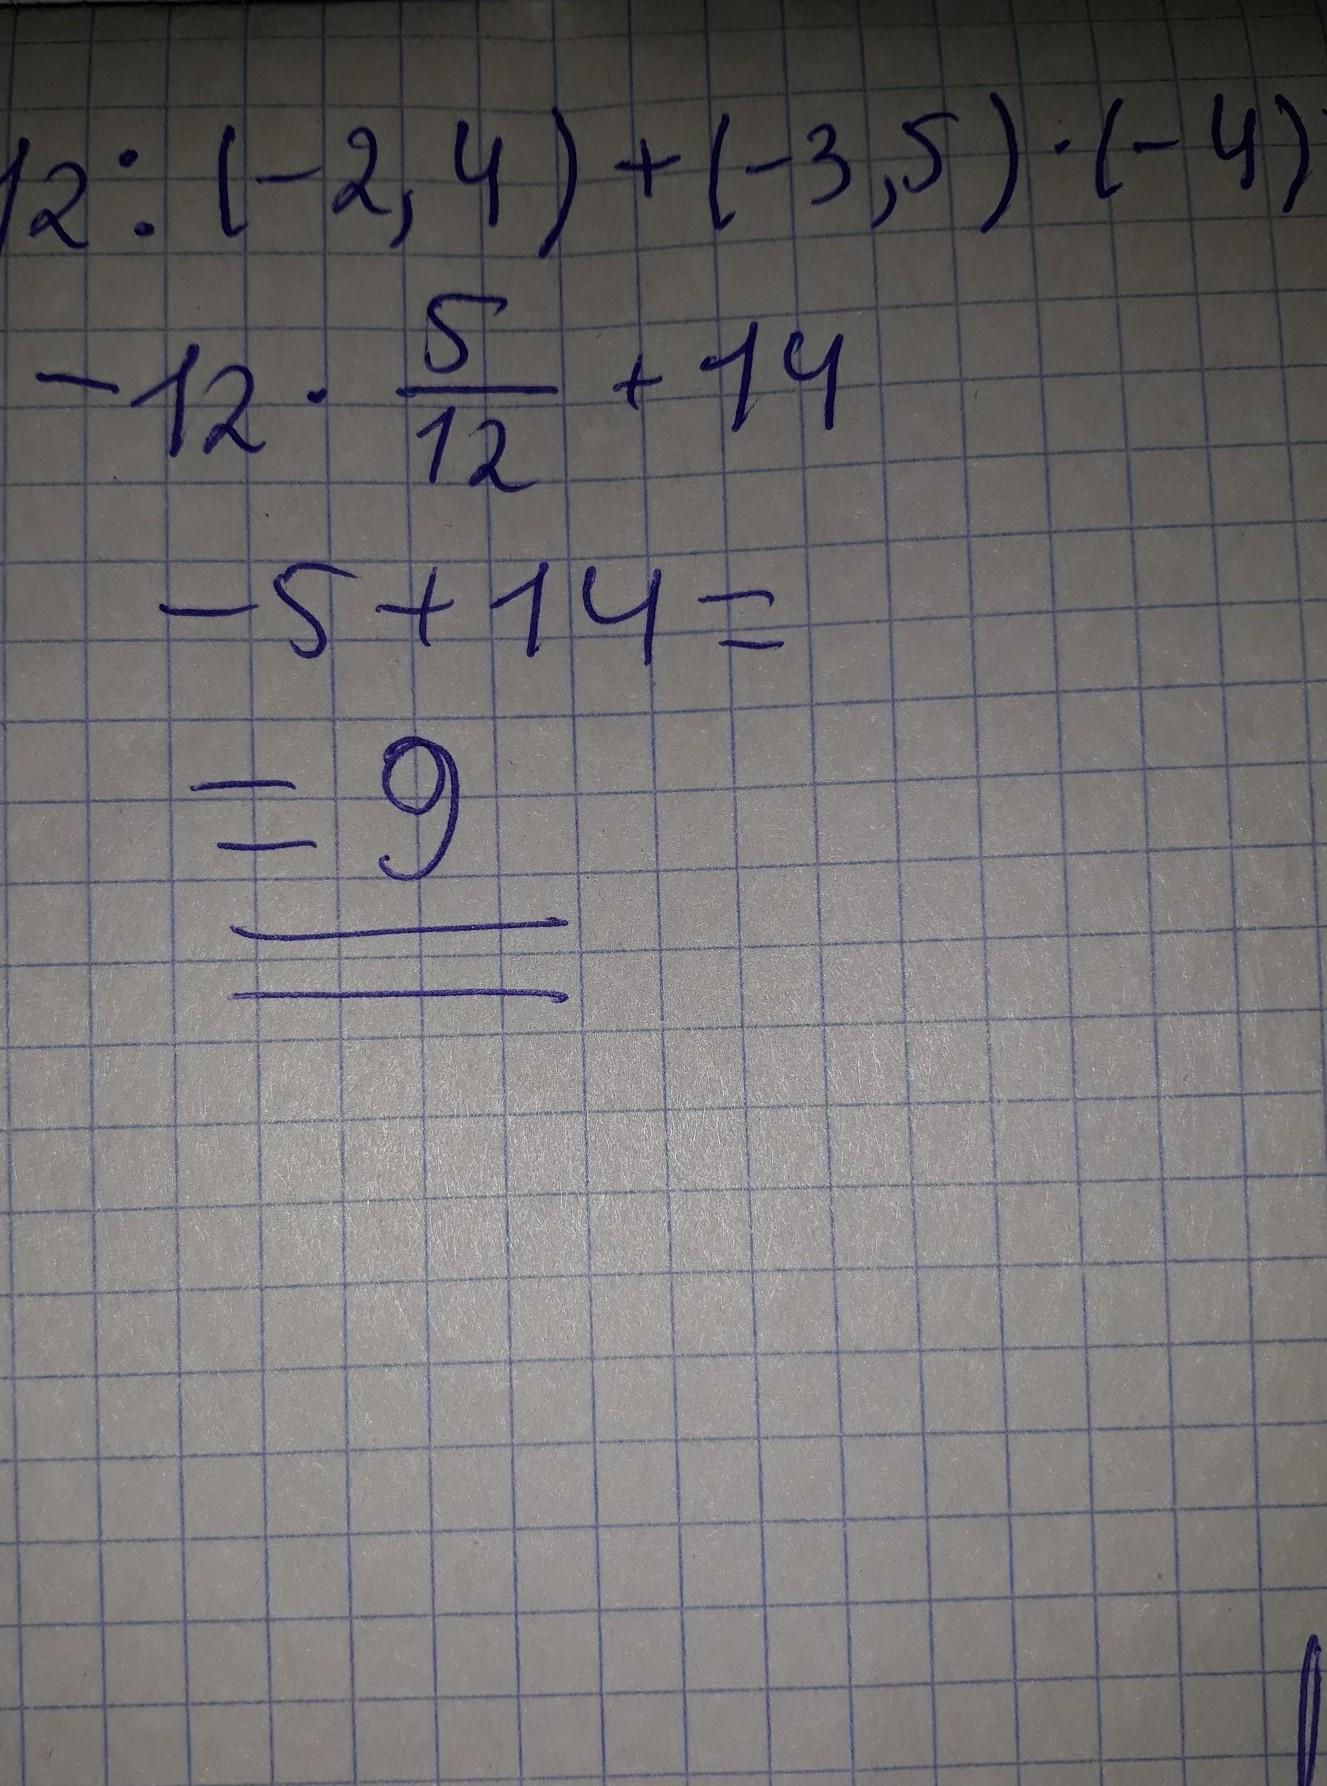 12:(-2,4)+(-3,5)·(-4)
-12·5/12+14
-5+14=
=9